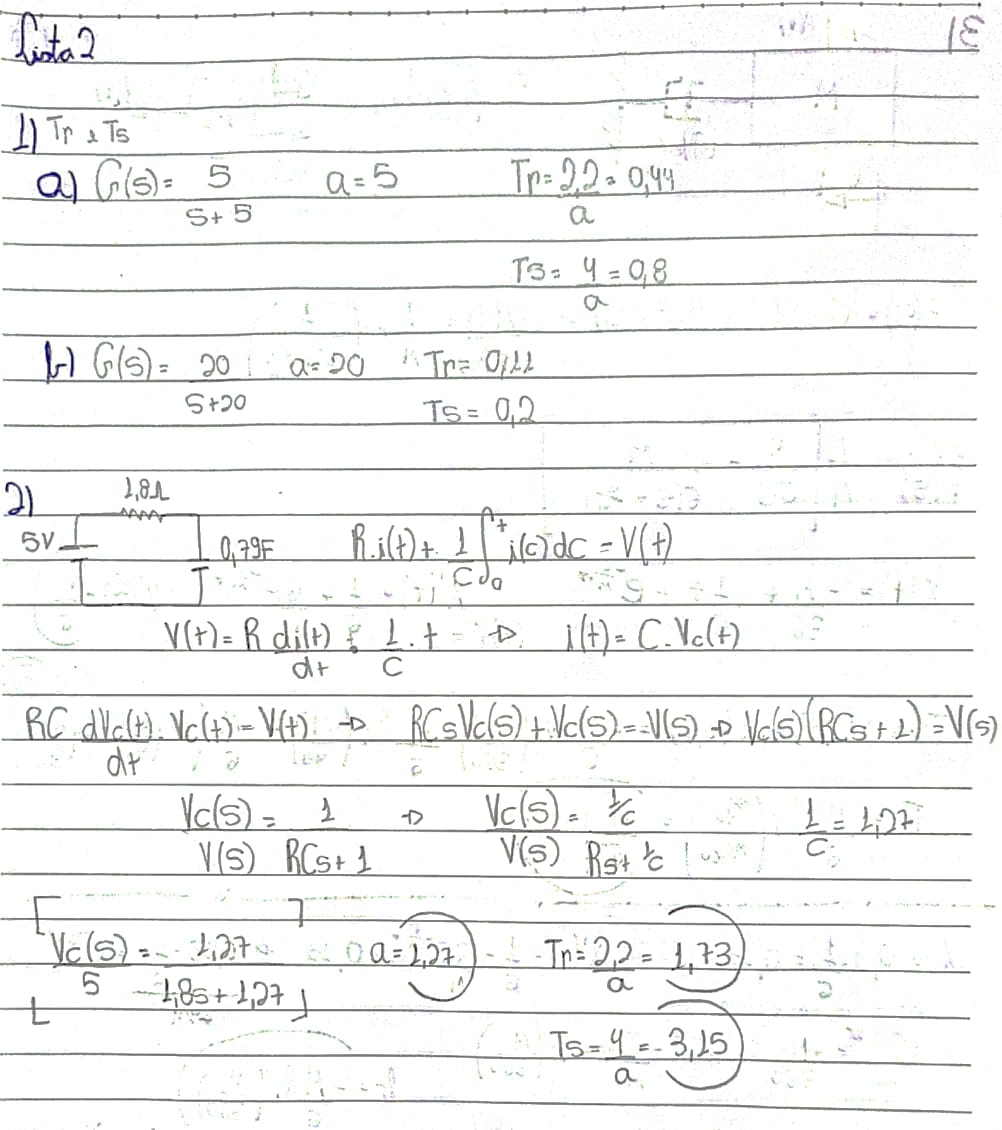 Lista 2
1) Tr e Ts
a) G(s) = 5/(s+5) a = 5 Tr = 2,2/a = 0,44
Ts = 4/a = 0,8
b) G(s) = 20/(s+20) a = 20 Tr = 0,11
Ts = 0,2
2)
1,8Ω
5V 0,79F R.i(t) + 1/C ∫₀ᵗ i(c)dc = V(t)
V(t) = R di(t)/dt + 1/C . t ⇒ i(t) = C.Vc(t)
RC dVc(t)/dt . Vc(t) = V(t) → RCsVc(s) + Vc(s) = V(s) → Vc(s)(RCs+1) = V(s)
Vc(s)/V(s) = 1/(RCs+1) → Vc(s)/V(s) = 1/C/(Rs+1/C) 1/C = 1,27
Vc(s)/5 = 1,27/(1,8s+1,27) a = 1,27 Tr = 2,2/a = 1,73
Ts = 4/a = 3,15